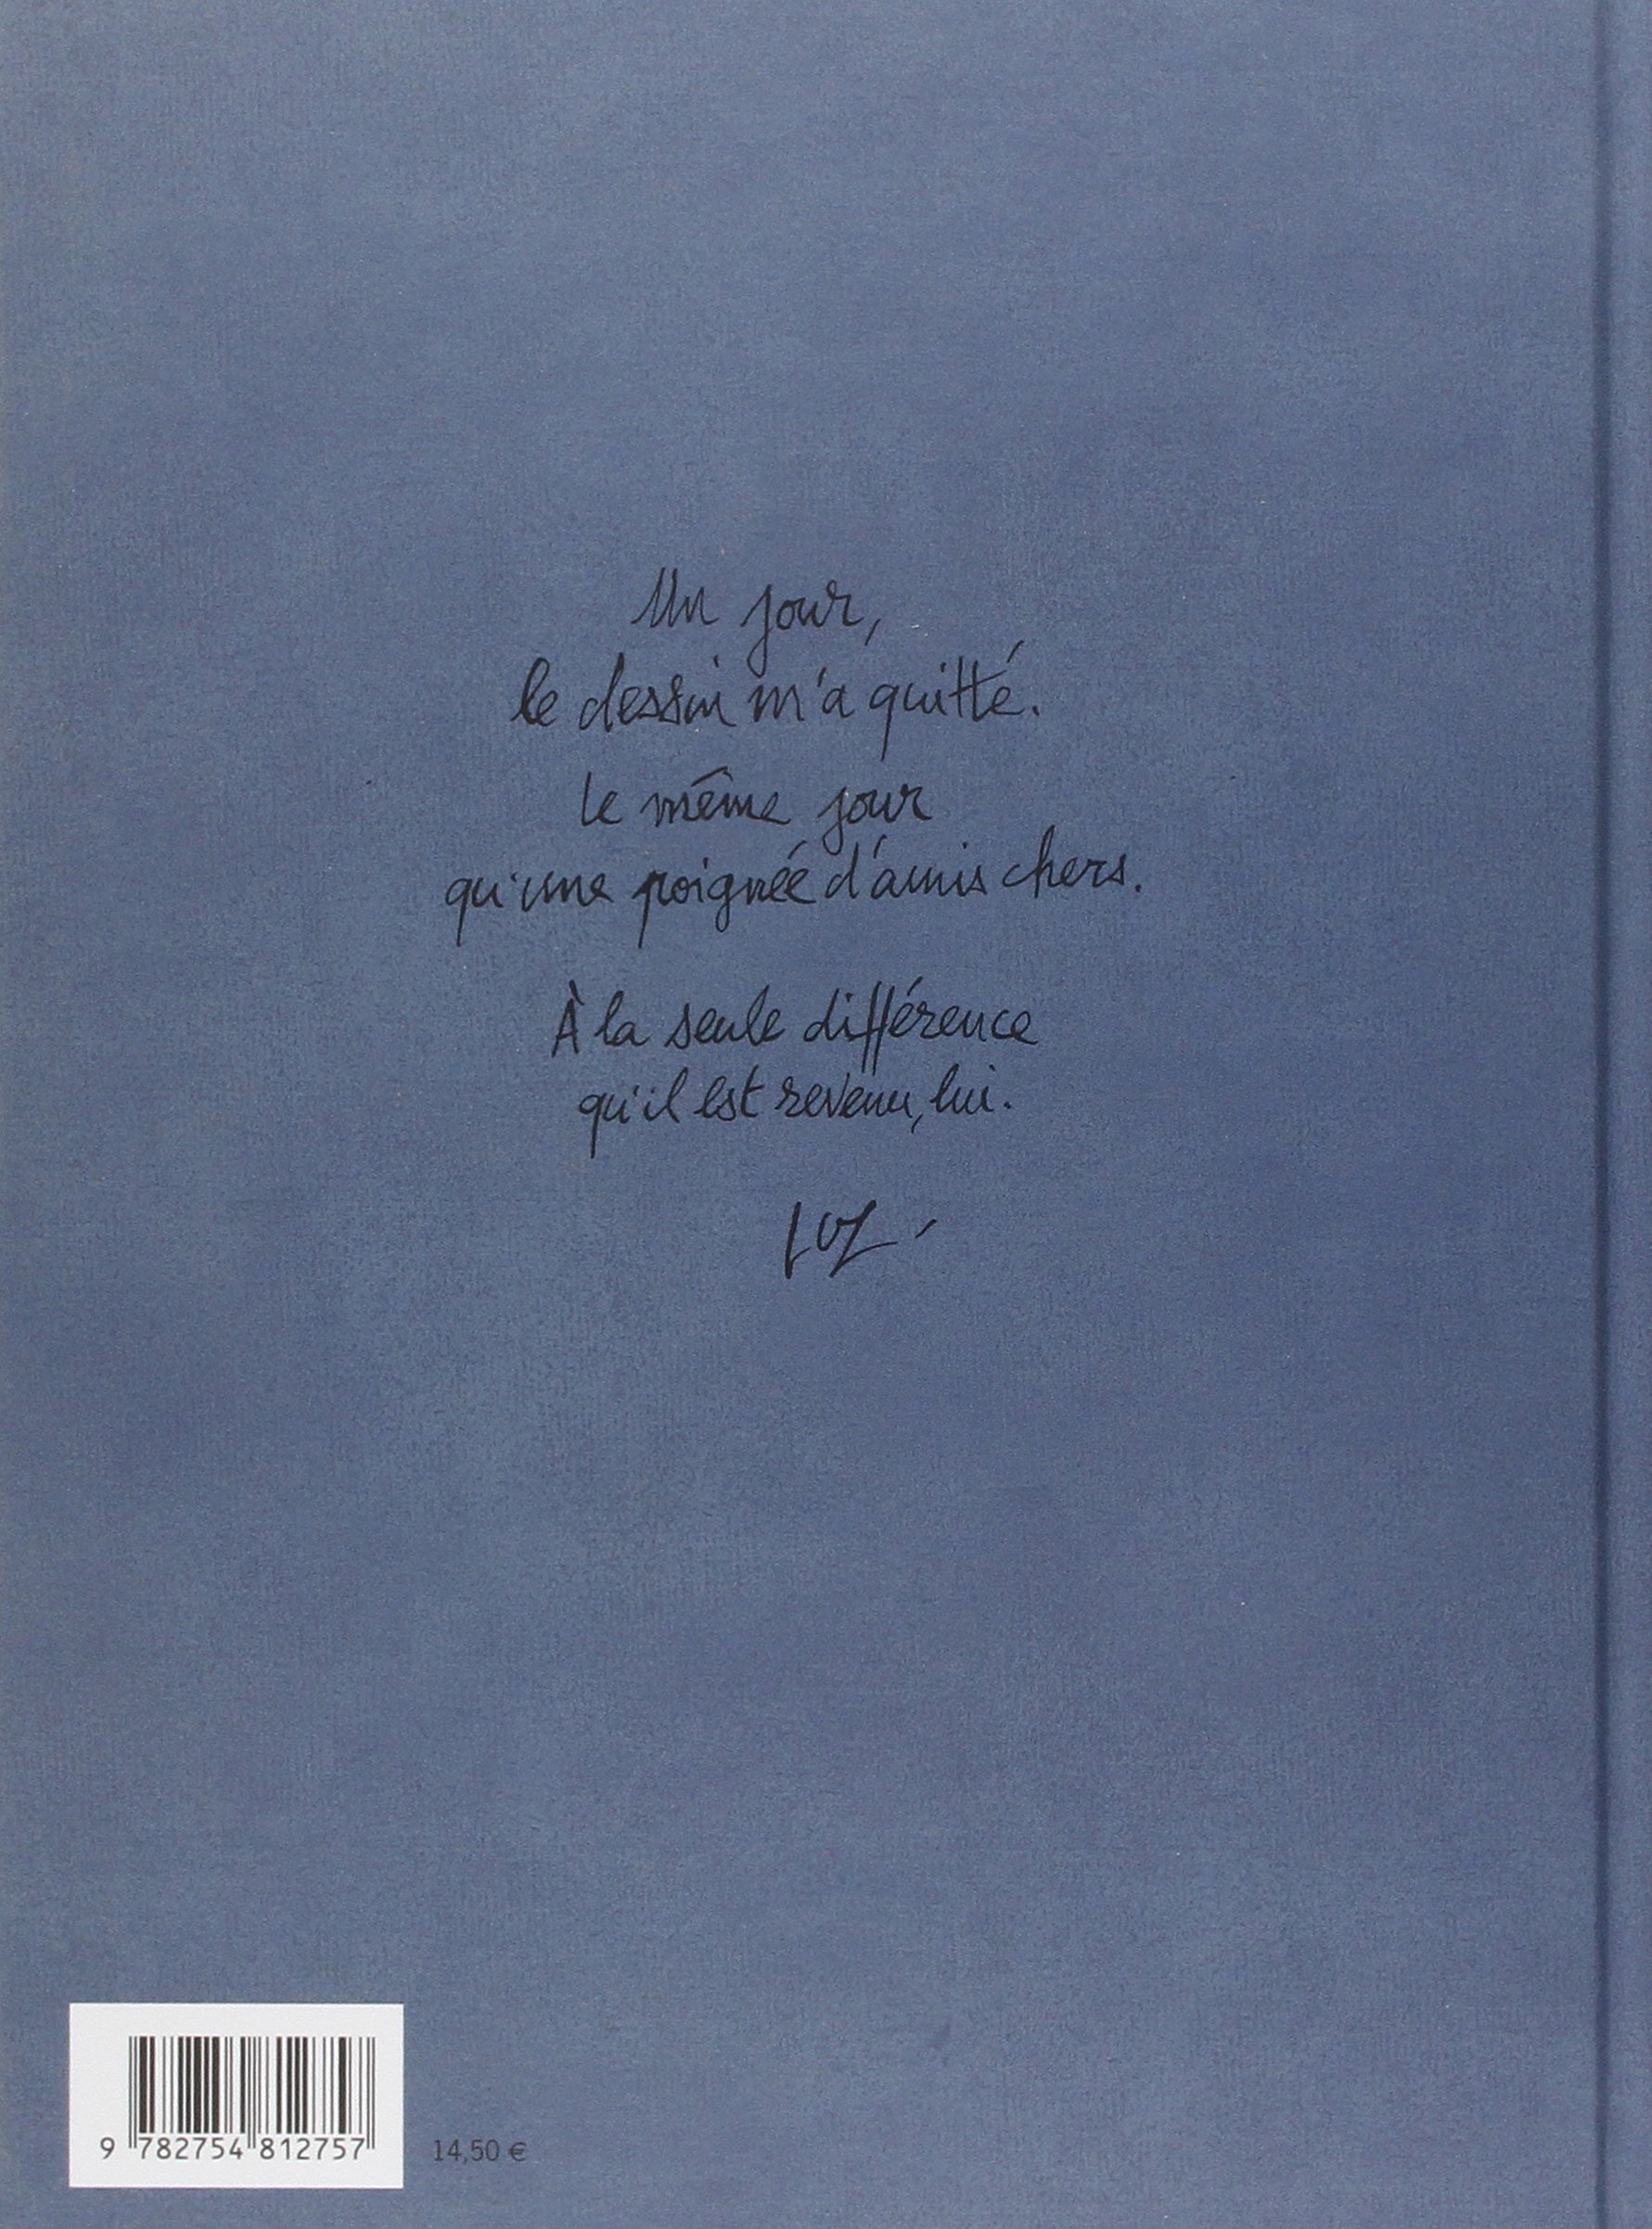 Un jour,
le dessin m'a quitté.
le même jour
qu'une poignée d'amis chers.
À la seule différence
qu'il est revenu, lui.
LUZ
9 782754 812757
14,50 €